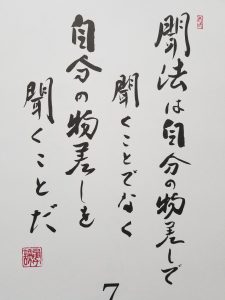 聞法は自分の物差しで
聞くことでなく
自分の物差しを
聞くことだ
7